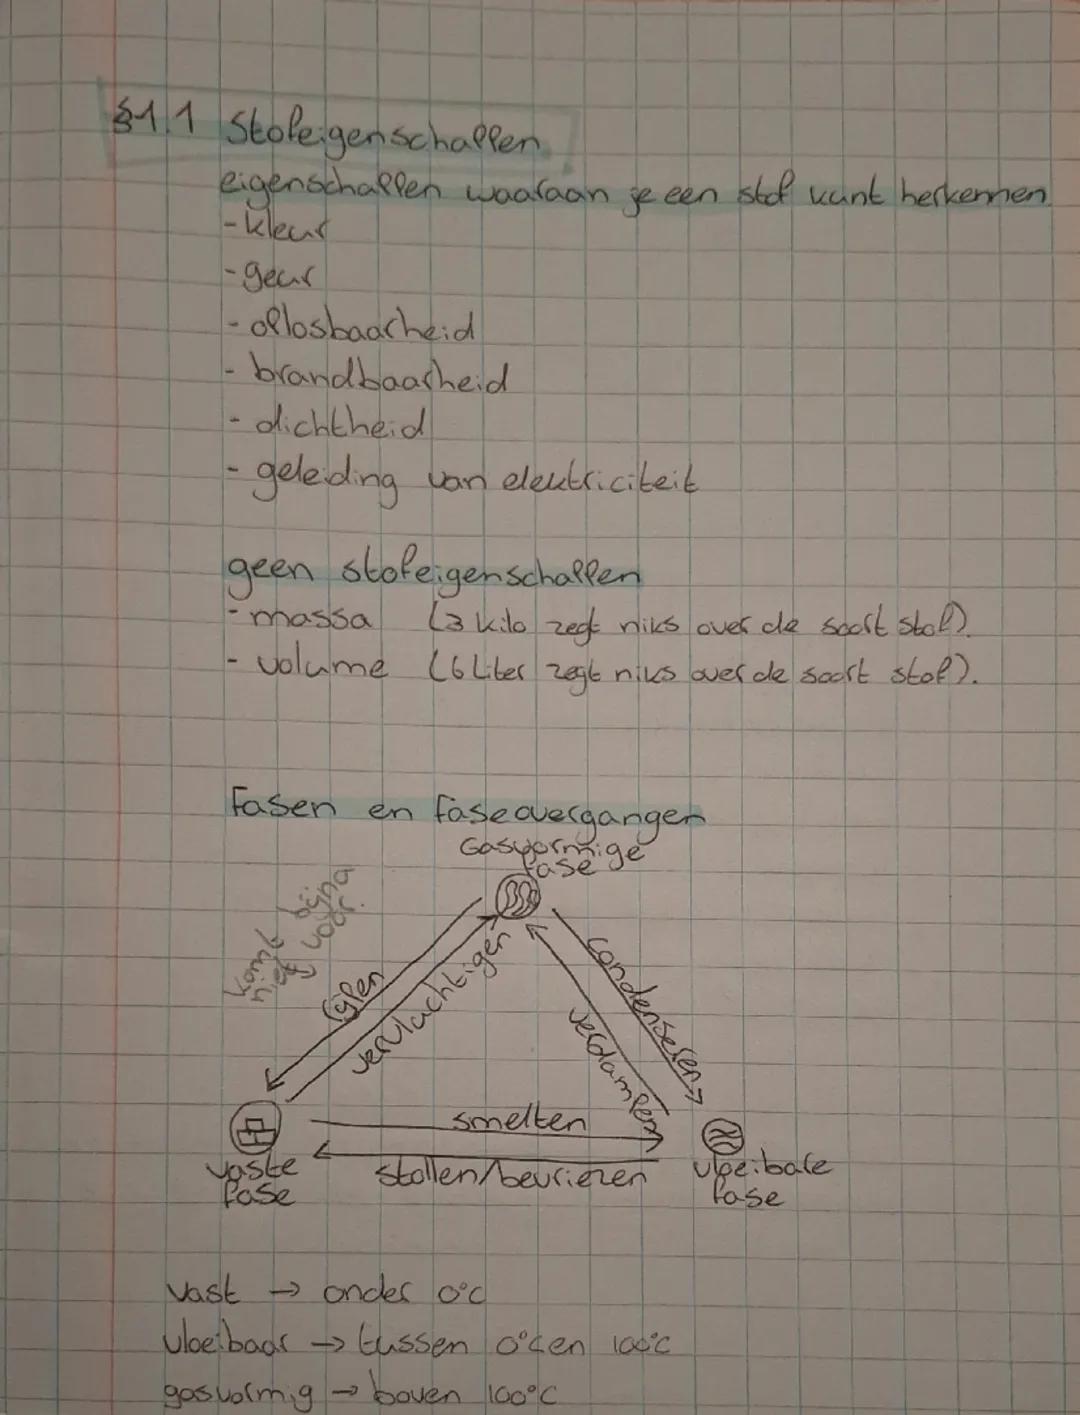 §1.1 Stofeigenschappen
eigenschappen waaraan je een stof kunt herkennen
- kleur
- geur
- oplosbaarheid
- brandbaarheid
- dichtheid
- geleiding van elektriciteit
geen stofeigenschappen
- massa (3 kilo zegt niks over de soort stof).
- volume (6 Liter zegt niks over de soort stof).
Fasen en faseovergangen
Gasvormige
fase
komt bijna
niet voor.
rijpen
vervluchtigen
condenseren
verdampen
smelten
stollen/bevriezen
vaste
fase
vloeibare
fase
vast → onder 0°C
vloeibaar → tussen 0°C en 100°C
gasvormig → boven 100°C